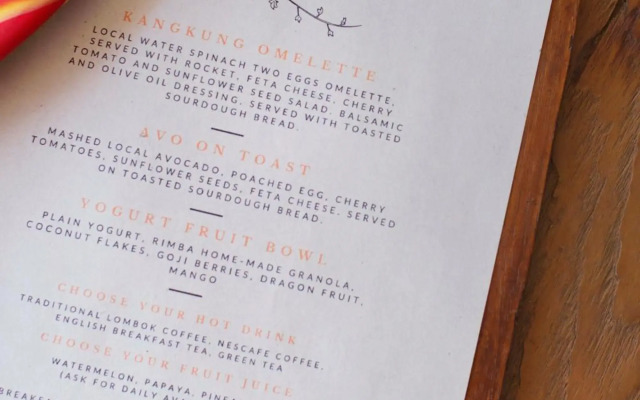 KANGKUNG OMELETTE
LOCAL WATER SPINACH TWO EGGS OMELETTE,
SERVED WITH ROCKET, FETA CHEESE, CHERRY
TOMATO AND SUNFLOWER SEED SALAD. BALSAMIC
AND OLIVE OIL DRESSING, SERVED WITH TOASTED
SOURDOUGH BREAD.
AVO ON TOAST
MASHED LOCAL AVOCADO, POACHED EGG, CHERRY
TOMATOES, SUNFLOWER SEEDS, FETA CHEESE. SERVED
ON TOASTED SOURDOUGH BREAD.
YOGURT FRUIT BOWL
PLAIN YOGURT, RIMBA HOME-MADE GRANOLA,
COCONUT FLAKES, GOJI BERRIES, DRAGON FRUIT,
MANGO
CHOOSE YOUR HOT DRINK
TRADITIONAL LOMBOK COFFEE, NESCAFE COFFEE,
ENGLISH BREAKFAST TEA, GREEN TEA
CHOOSE YOUR FRUIT JUICE
WATERMELON, PAPAYA,
(ASK FOR DAILY